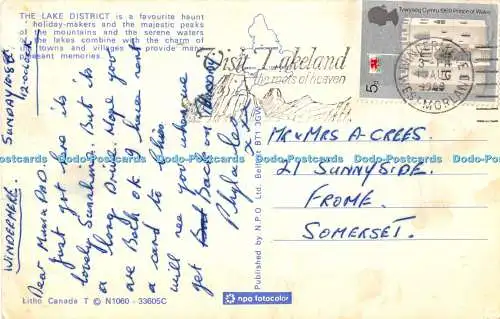 THE LAKE DISTRICT is a favourite haunt
holiday-makers and the majestic peaks
of the mountains and the serene waters
of the lakes combine with the charm of
towns and villages to provide many
pleasant memories.
WINDERMERE. SUNDAY
12 o'clock
Dear Mum & Dad
Just got here its
lovely Sunshine. But its
a long Drive. Hope you
are Both ok. I haven't sent
a card to
will see you when we
get Back on
Phyl
x x x
Litho Canada T © N1060 - 33605C
Published by N.P.O. Ltd. Belfast BT1 3GW
npo fotocolor
Visit Lakeland
the roots of heaven
Tywysog Cymru 1969 Prince of Wales
5d
AUG
1969
WESTMORLAND
MR & MRS A CREES.
21 SUNNYSIDE.
FROME.
SOMERSET.
Dodo-Postcards Dodo-Postcards Dodo-Postcards Dodo-Postcards Dodo-Postcards